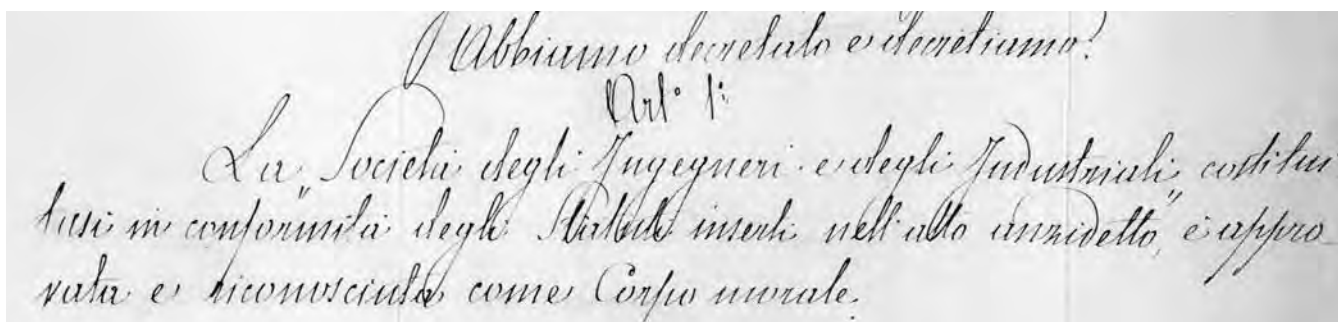 Abbiamo decretato e decretiamo:
Art.º 1º
La "Società degli Ingegneri e degli Industriali, costitui
tasi in conformità degli Statuti inserti nell'atto anzidetto, è appro-
vata e riconosciuta come Corpo morale.